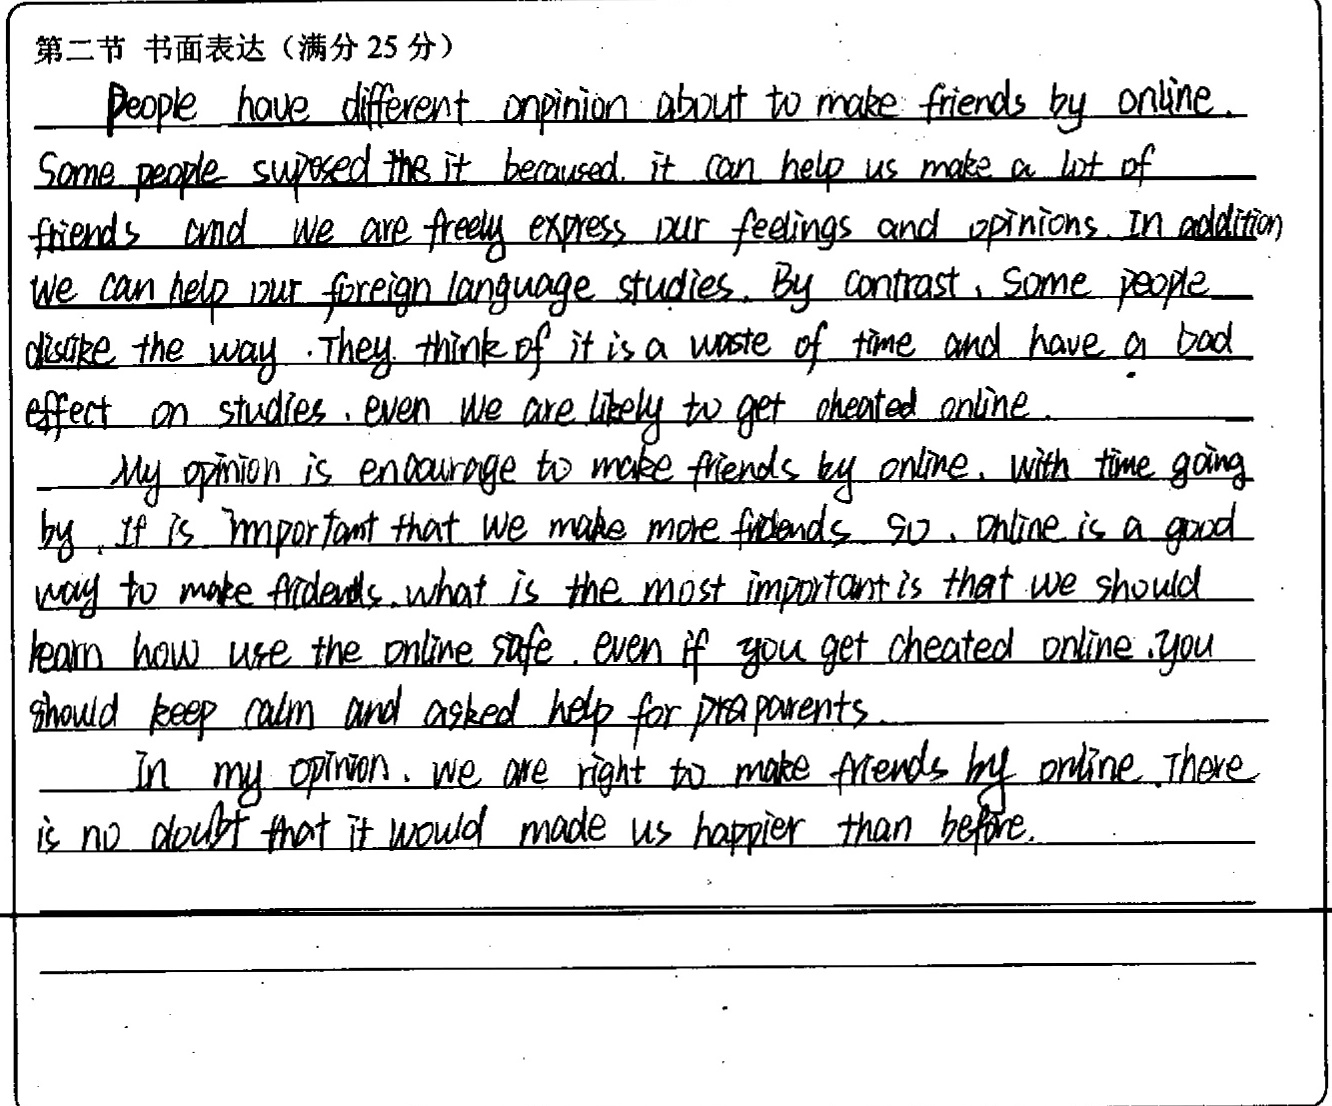 第二节 书面表达（满分 25 分）
People have different onpinion about to make friends by online.
Some people suposed the it beraused. it can help us make a lot of
friends and we are freely express our feelings and opinions. In addition
we can help our foreign language studies. By contrast, Some people
dislike the way. They think of it is a waste of time and have a bad
effect on studies, even we are likely to get cheated online.
My opinion is encourage to make friends by online. With time going
by, It is important that we make more fridends so, online is a good
way to make fridends. what is the most important is that we should
learn how use the online safe. even if you get cheated online, you
should keep calm and asked help for parents.
In my opinion, we are right to make friends by online. There
is no doubt that it would made us happier than before.